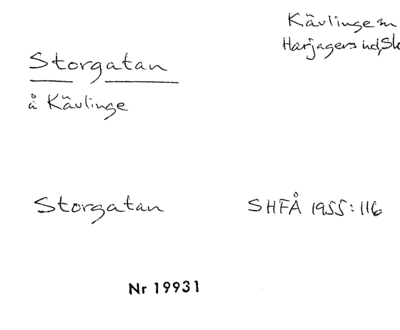 Kävlinge sn
Harjagers hd, Sk
Storgatan
å Kävlinge
Storgatan SHFÅ 1955:116
Nr 19931